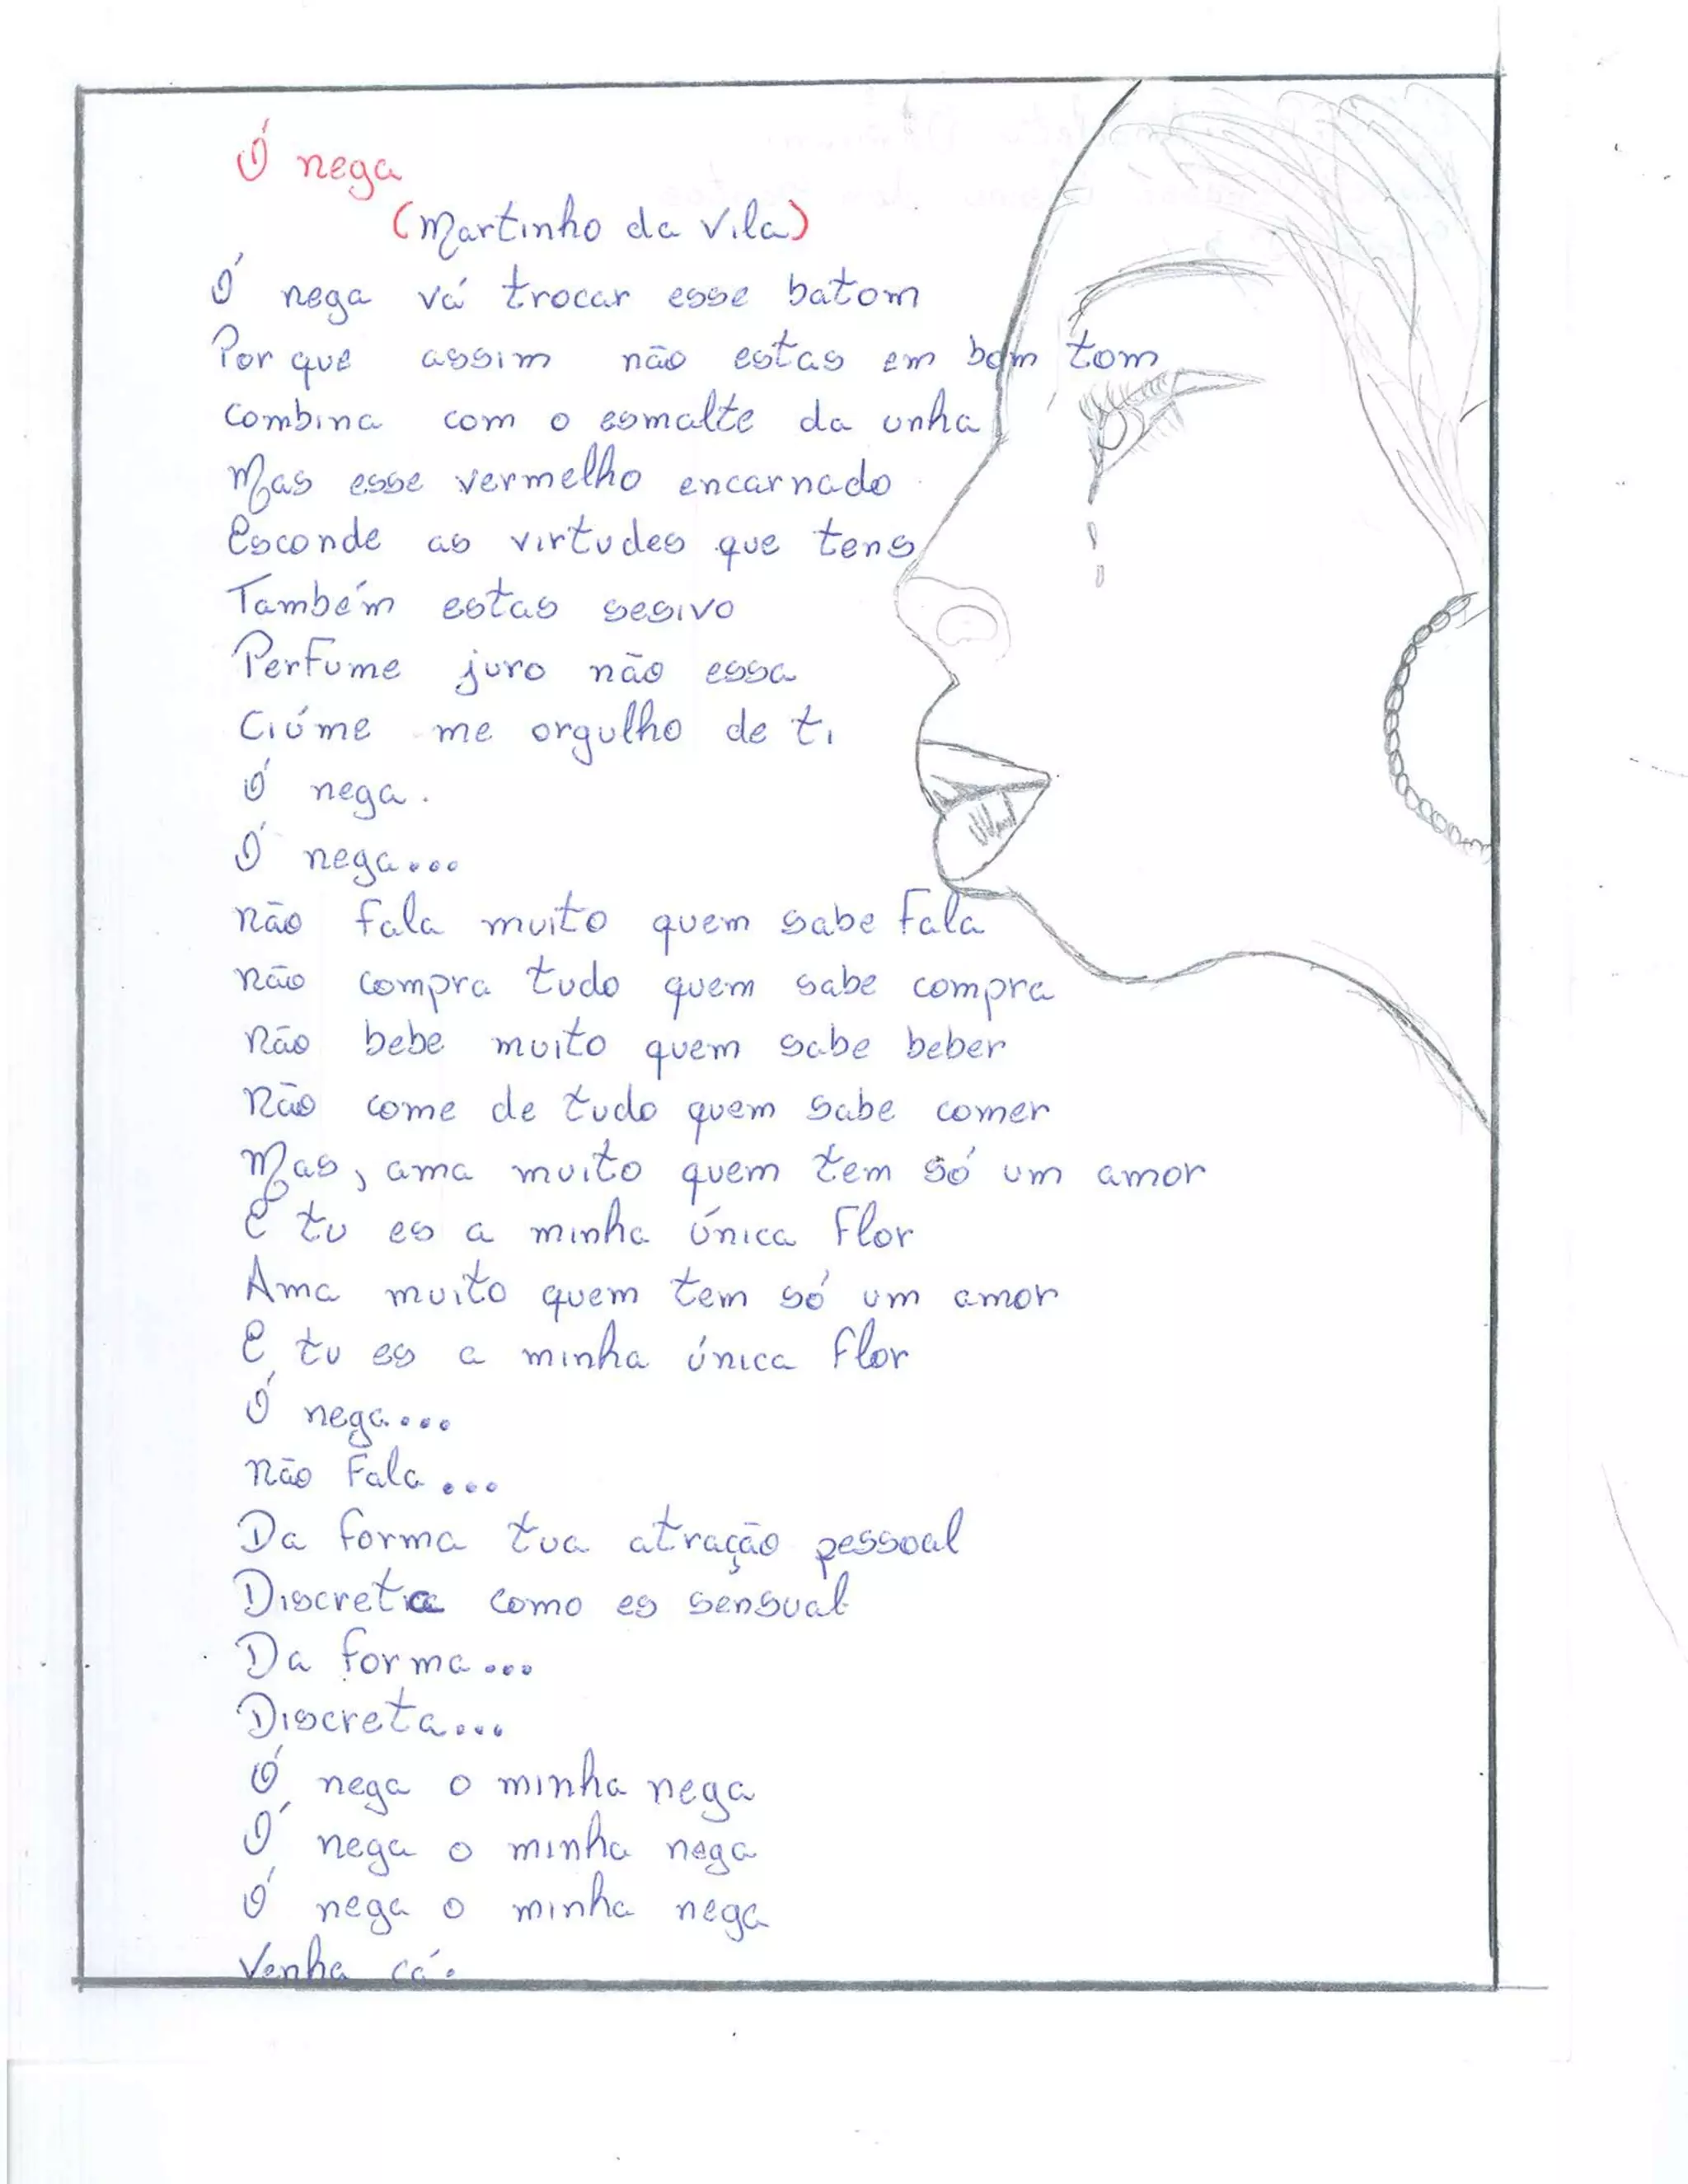 Ó nega
(Martinho da Vila)
Ó nega vá trocar esse batom
Por que assim não estas em bom tom
Combina com o esmalte da unha
Mas esse vermelho encarnado
Esconde as virtudes que tens
Também estas sesivo
Perfume juro não essa
Ciúme me orgulho de ti
Ó nega.
Ó nega...
Não fala muito quem sabe fala
Não compra tudo quem sabe compra
Não bebe muito quem sabe beber
Não come de tudo quem sabe comer
Mas, ama muito quem tem só um amor
E tu es a minha única Flor
Ama muito quem tem só um amor
E tu es a minha única flor
Ó nega...
Não Fala...
Da forma tua atração pessoal
Discreta como es sensual
Da forma...
Discreta...
Ó nega o minha nega
Ó nega o minha nega
Ó nega o minha nega
Venha cá.